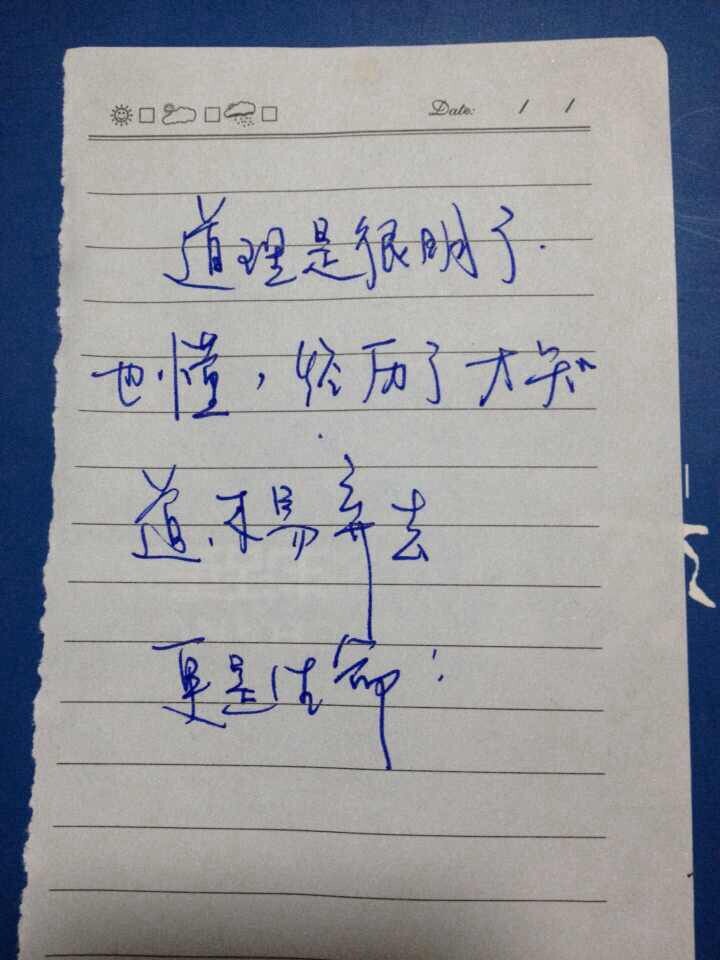 Date: / /
道理是很明了.
也懂，经历了才知
道，来易弃去
更是生命